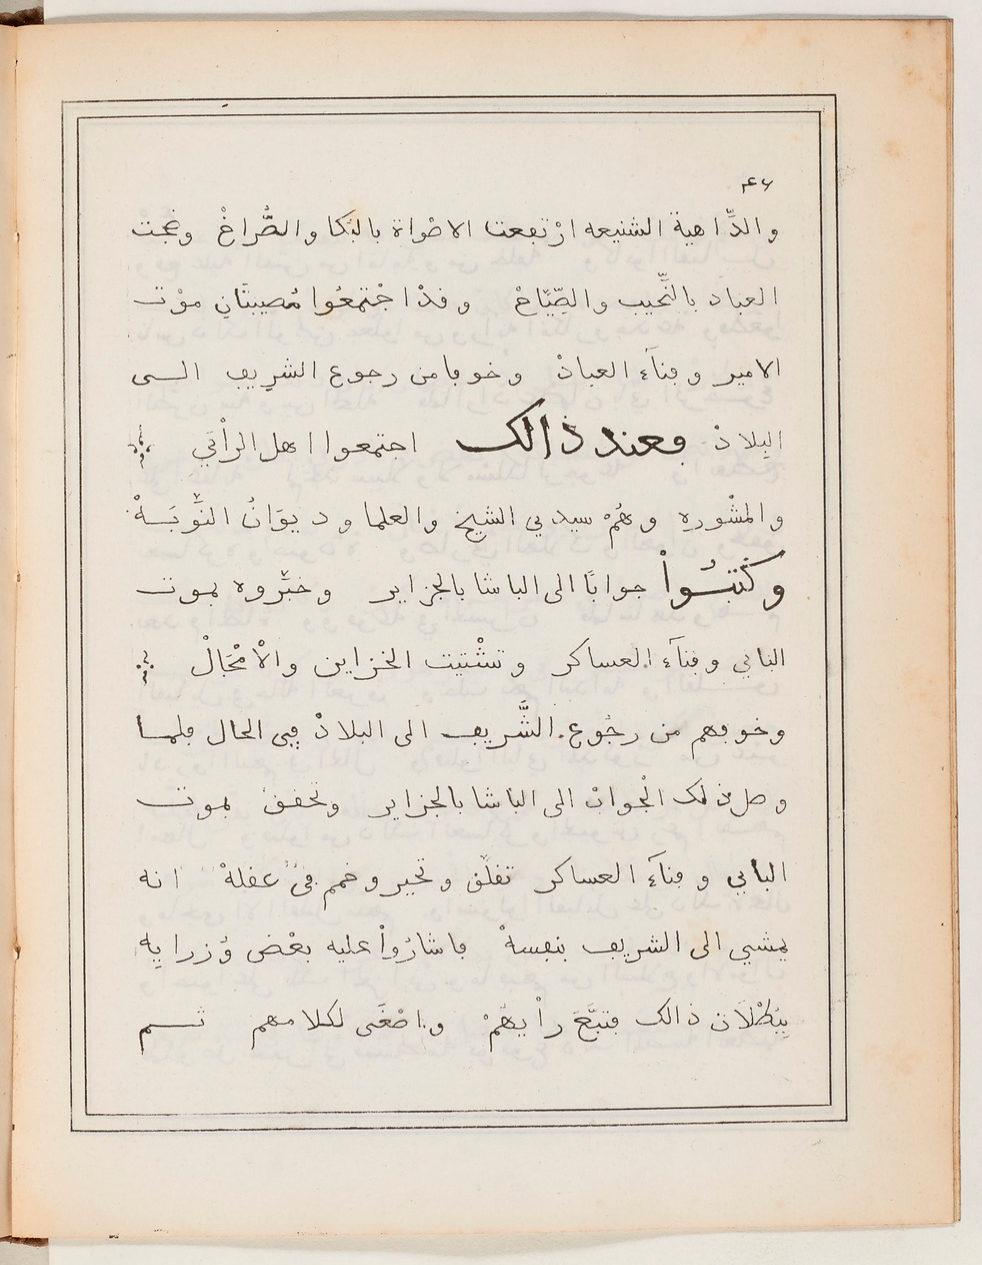 ٤٦
والدَّاهية الشنيعه ارْتفعت الاصْواة بالبُكا والصُّراغْ وضجت
العباد بالنَّحيب والصِّيَّاحْ وقدْ اجْتمعُوا مُصيبتَانِ موْت
الامير وفنآء العبادْ وخوفا من رجوع الشريف الــى
البِلادْ فعند ذالك اجتمعوا اهل الرأْيَي
والمشْوره وهُمْ سيدي الشيخ والعلما وديوَانُ النَّوْبَــةْ
وكَتبُــواْ جوابًا الى الباشا بالجزاير وخبَّروه بموت
الباي وفنآء العساكر وتشْتيت الخزاين والْامْحَالْ
وخوفهم من رجُوع الشَّريف الى البلادْ في الحال فلمــا
وصل ذلك الْجوابْ الى الباشا بالجزاير وتحقق بموت
الباي وفنآء العساكر تقلَّق وتحير وخمم في عقلهْ انه
يمشي الى الشريف بنفسهْ فاشارُواْ عليه بعْض وُزرايِه
بِبُطْلَان ذالك فتبَّعَ رأْيهُمْ واصْغَى لكلامهم ثــم